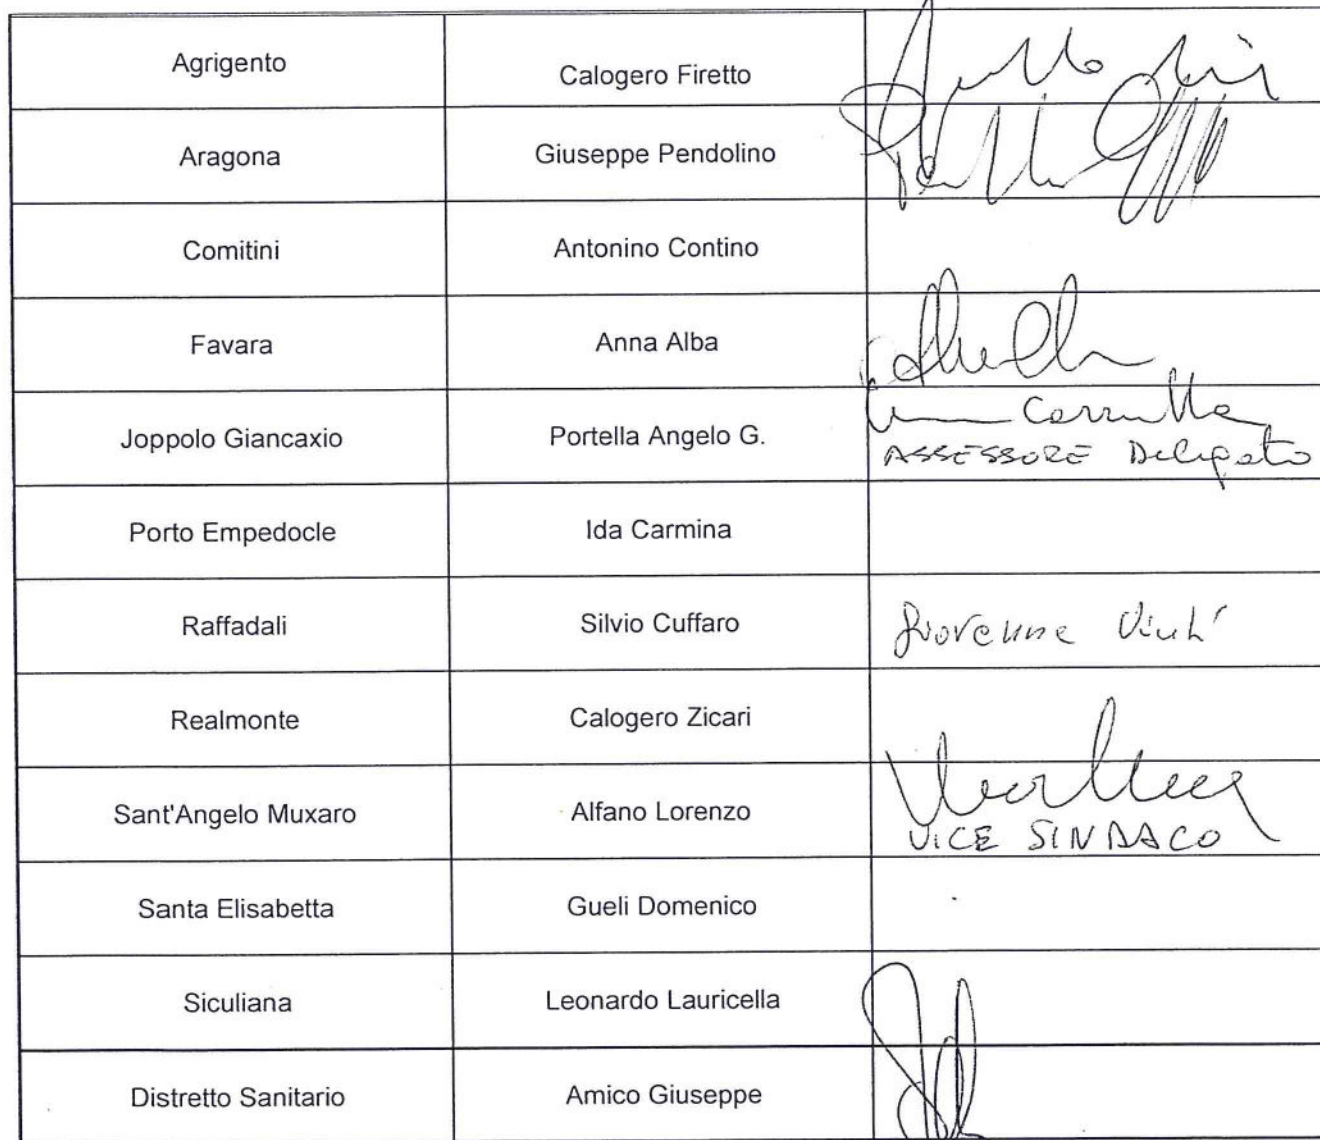 Agrigento Calogero Firetto
Aragona Giuseppe Pendolino
Comitini Antonino Contino
Favara Anna Alba
Joppolo Giancaxio Portella Angelo G.
ASSESSORE Delegato
Porto Empedocle Ida Carmina
Raffadali Silvio Cuffaro
Realmonte Calogero Zicari
Sant'Angelo Muxaro Alfano Lorenzo
VICE SINDACO
Santa Elisabetta Gueli Domenico
Siculiana Leonardo Lauricella
Distretto Sanitario Amico Giuseppe